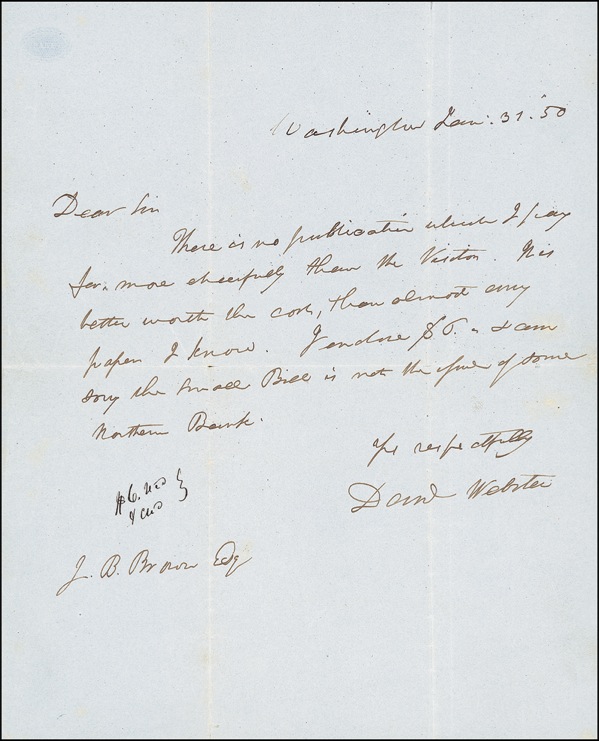 Washington Jan: 31. '50
Dear Sir
There is no publication which I pay
for, more cheerfully than the Visitor. It is
better worth the cost, than almost any
paper I know. I enclose $6. & am
sory the small Bill is not the issue of some
Northern Bank.
Yrs respectfully
Danl Webster
$6. 
J. B. Brown Esq